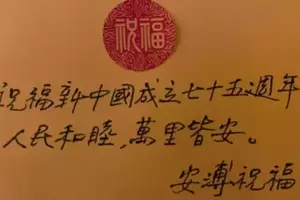 祝福
祝福新中國成立七十五週年
人民和睦，萬里皆安。
安溥祝福